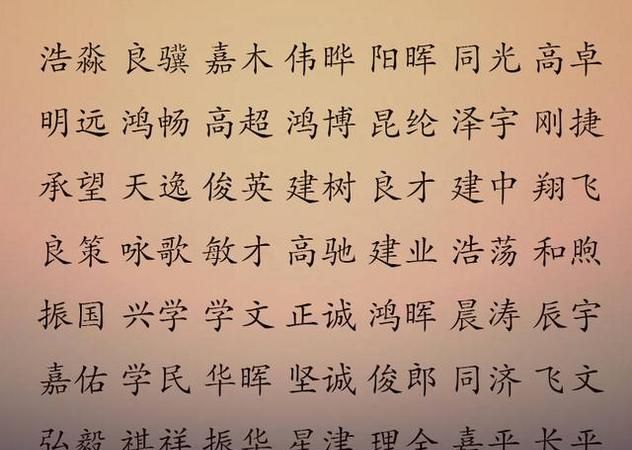 浩淼 良骥 嘉木 伟晔 阳晖 同光 高卓
明远 鸿畅 高超 鸿博 昆纶 泽宇 刚捷
承望 天逸 俊英 建树 良才 建中 翔飞
良策 咏歌 敏才 高驰 建业 浩荡 和煦
振国 兴学 学文 正诚 鸿晖 晨涛 辰宇
嘉佑 学民 华晖 坚诚 俊郎 同济 飞文
弘毅 祺祥 振华 星津 理全 嘉平 长平